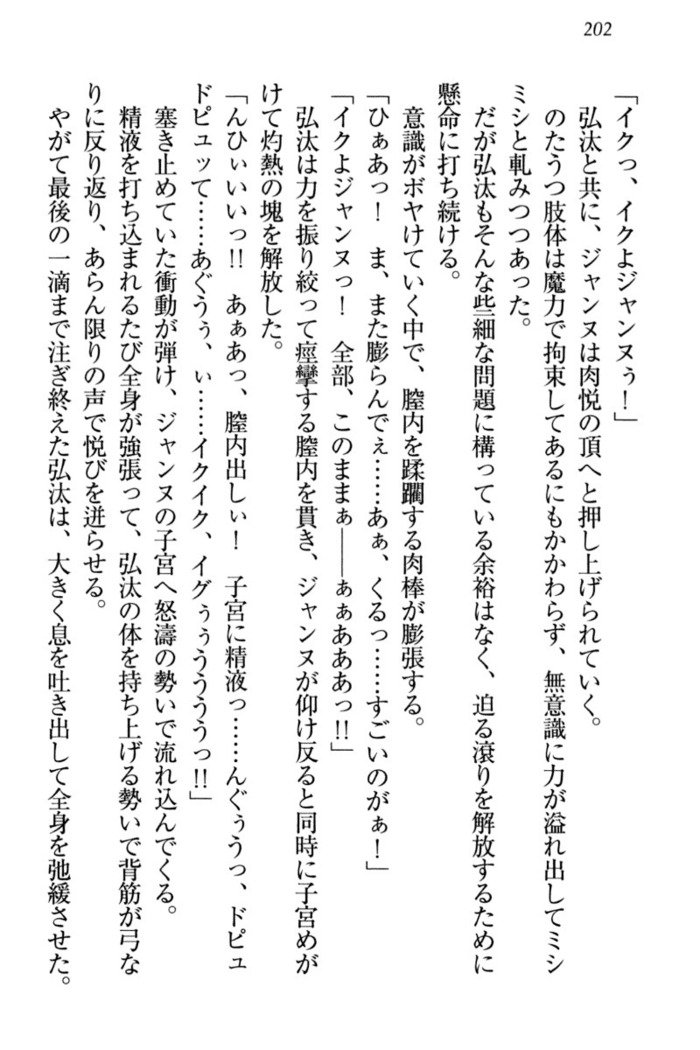 202
「イクっ、イクよジャンヌぅ！」
弘汰と共に、ジャンヌは肉悦の頂へと押し上げられていく。
のたうつ肢体は魔力で拘束してあるにもかかわらず、無意識に力が溢れ出してミシ
ミシと軋みつつあった。
だが弘汰もそんな些細な問題に構っている余裕はなく、迫る滾りを解放するために
懸命に打ち続ける。
意識がボヤけていく中で、膣内を蹂躙する肉棒が膨張する。
「ひぁあっ！　ま、また膨らんでぇ……あぁ、くるっ……すごいのがぁ！」
「イクよジャンヌっ！　全部、このままぁ――ぁぁあああっ!!」
弘汰は力を振り絞って痙攣する膣内を貫き、ジャンヌが仰け反ると同時に子宮めが
けて灼熱の塊を解放した。
「んひぃいいっ!!　あぁあっ、膣内出しぃ！　子宮に精液っ……んぐぅうっ、ドピュ
ドピュッて……あぐうぅ、ぃ……イクイク、イグぅぅうううっ!!」
塞き止めていた衝動が弾け、ジャンヌの子宮へ怒濤の勢いで流れ込んでくる。
精液を打ち込まれるたび全身が強張って、弘汰の体を持ち上げる勢いで背筋が弓な
りに反り返り、あらん限りの声で悦びを迸らせる。
やがて最後の一滴まで注ぎ終えた弘汰は、大きく息を吐き出して全身を弛緩させた。